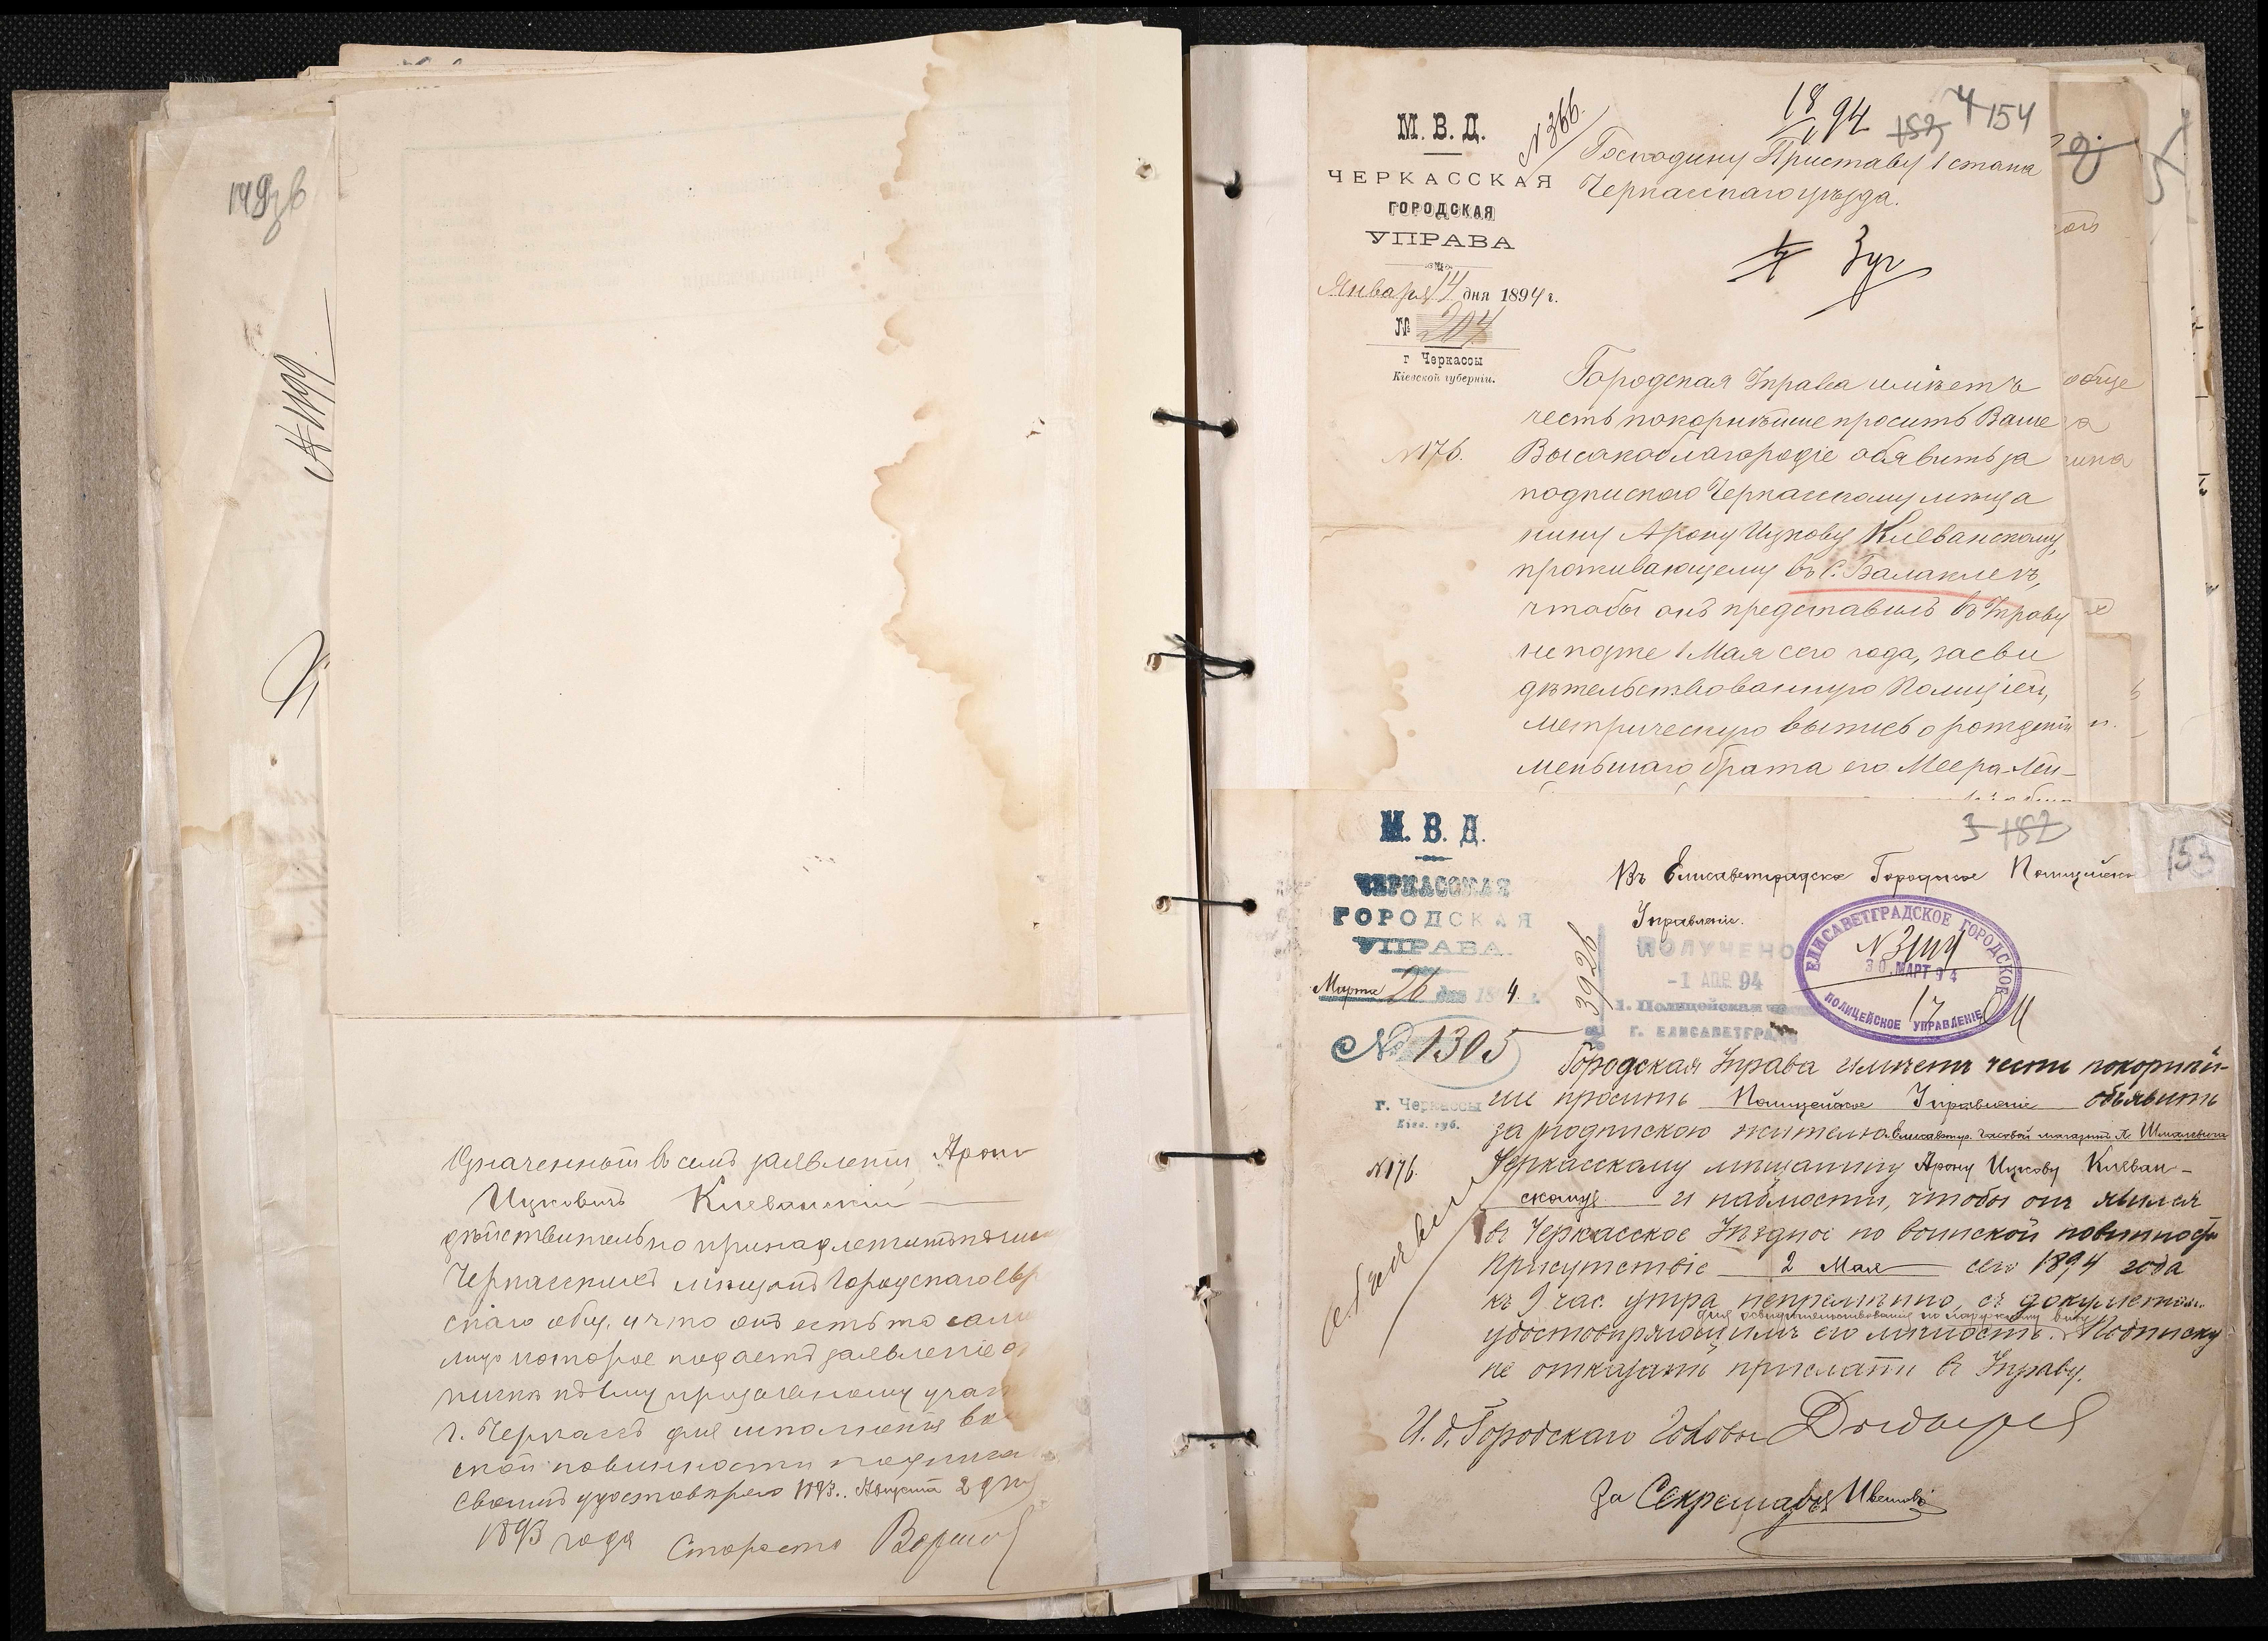 149об
№ 1199.
Означенный в семъ заявленіи Аронъ
Ицковичъ Киеванскій
дѣйствительно принадлежитъ къ
Черкасскимъ мѣщанамъ Городскаго Евр
скаго общ. и что онъ есть то само
лицо которое подаетъ заявленіе о
припискѣ къ призывному учас
г. Черкасъ для исполненія во
ской повинности подписа
своимъ удостовѣряю 1893.. Августа 2 дня
1893 года Староста
М. В. Д.
ЧЕРКАССКАЯ
ГОРОДСКАЯ
УПРАВА
Января 14 дня 1894 г.
№ 204
г Черкассы
Кіевской губерніи.
№ 366.
18/I 94
152 4 154
Господину Приставу 1 стана
Черкасскаго уѣзда.
3 уч
№176.
Городская Управа имѣетъ
честь покорнѣйше просить Ваше
Высокоблагородіе объявить за
подпискою Черкасскому мѣща
нину Арону Ицкову Киеванскому,
проживающему въ с. Балаклеѣ,
чтобы онъ представилъ въ Управу
не позже 1 Мая сего года, засви
дѣтельствованную Полиціей,
метрическую выпись о рожденіи
меньшаго брата его Меера-Лей-
М. В. Д.
ЧЕРКАССКАЯ
ГОРОДСКАЯ
УПРАВА
Марта 26 дня 1894 г.
№ 1305
г. Черкассы
Кіев. губ.
№176.
3 152
153
Въ Елисаветградское Городское Полицейское
Управленіе.
3926
ПОЛУЧЕНО
-1 АПР. 94
1. Полицейская
г. ЕЛИСАВЕТГРАДЪ
ЕЛИСАВЕТГРАДСКОЕ ГОРОДСКОЕ
№ 3144
30. МАРТ 94
17
ПОЛИЦЕЙСКОЕ УПРАВЛЕНІЕ
Городская Управа имѣетъ честь покорнѣй-
ше просить Полицейское Управленіе объявить
за подпискою жителю Елисаветгр. Часовой магазинъ А. Шмалевича
Черкасскому мѣщанину Арону Ицкову Киеван-
скому и наблюсти, чтобы онъ явился
въ Черкасское Уѣздное по воинской повинности
Присутствіе 2 Мая сего 1894 года
къ 9 час. утра непремѣнно, съ документом
для освидѣтельствованія по наружному виду
удостовѣряющимъ его личность. Подписку
не отказать прислать въ Управу.
И. д. Городскаго Головы
За Секретаря